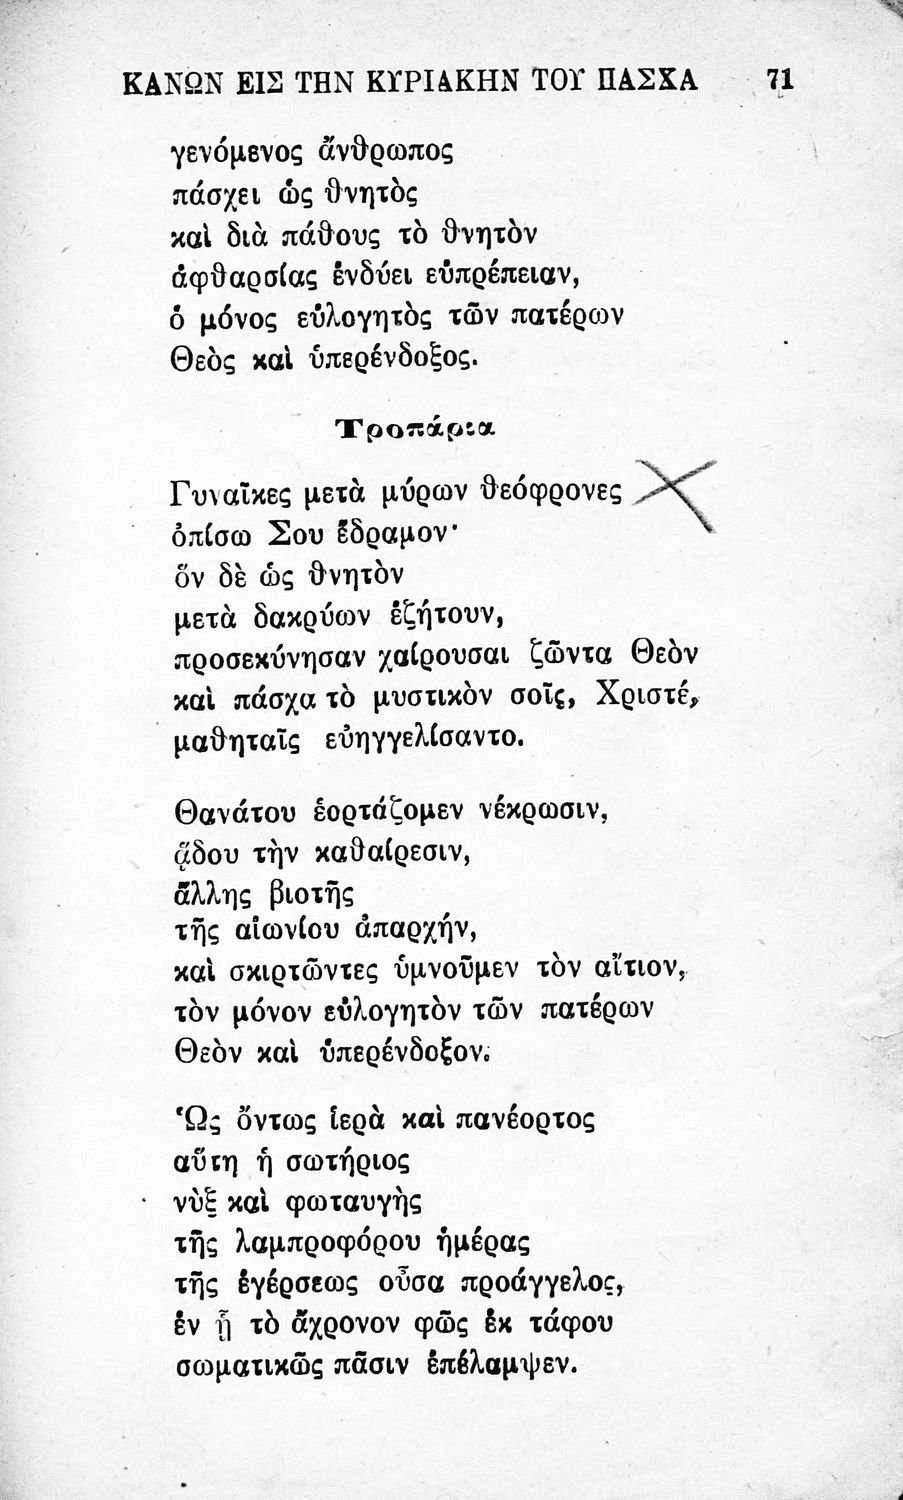 ΚΑΝΩΝ ΕΙΣ ΤΗΝ ΚΥΡΙΑΚΗΝ ΤΟΥ ΠΑΣΧΑ 71
γενόμενος ἄνθρωπος
πάσχει ὡς θνητὸς
καὶ διὰ πάθους τὸ θνητὸν
ἀφθαρσίας ἐνδύει εὐπρέπειαν,
ὁ μόνος εὐλογητὸς τῶν πατέρων
Θεὸς καὶ ὑπερένδοξος.
Τροπάρια
Γυναῖκες μετὰ μύρων θεόφρονες
ὀπίσω Σου ἔδραμον·
ὅν δὲ ὡς θνητὸν
μετὰ δακρύων ἐζήτουν,
προσεκύνησαν χαίρουσαι ζῶντα Θεὸν
καὶ πάσχα τὸ μυστικὸν σοῖς, Χριστέ,
μαθηταῖς εὐηγγελίσαντο.
Θανάτου ἑορτάζομεν νέκρωσιν,
ᾅδου τὴν καθαίρεσιν,
ἄλλης βιοτῆς
τῆς αἰωνίου ἀπαρχήν,
καὶ σκιρτῶντες ὑμνοῦμεν τὸν αἴτιον,
τὸν μόνον εὐλογητὸν τῶν πατέρων
Θεὸν καὶ ὑπερένδοξον.
Ὡς ὄντως ἱερὰ καὶ πανέορτος
αὕτη ἡ σωτήριος
νὺξ καὶ φωταυγὴς
τῆς λαμπροφόρου ἡμέρας
τῆς ἐγέρσεως οὖσα προάγγελος,
ἐν ᾗ τὸ ἄχρονον φῶς ἐκ τάφου
σωματικῶς πᾶσιν ἐπέλαμψεν.